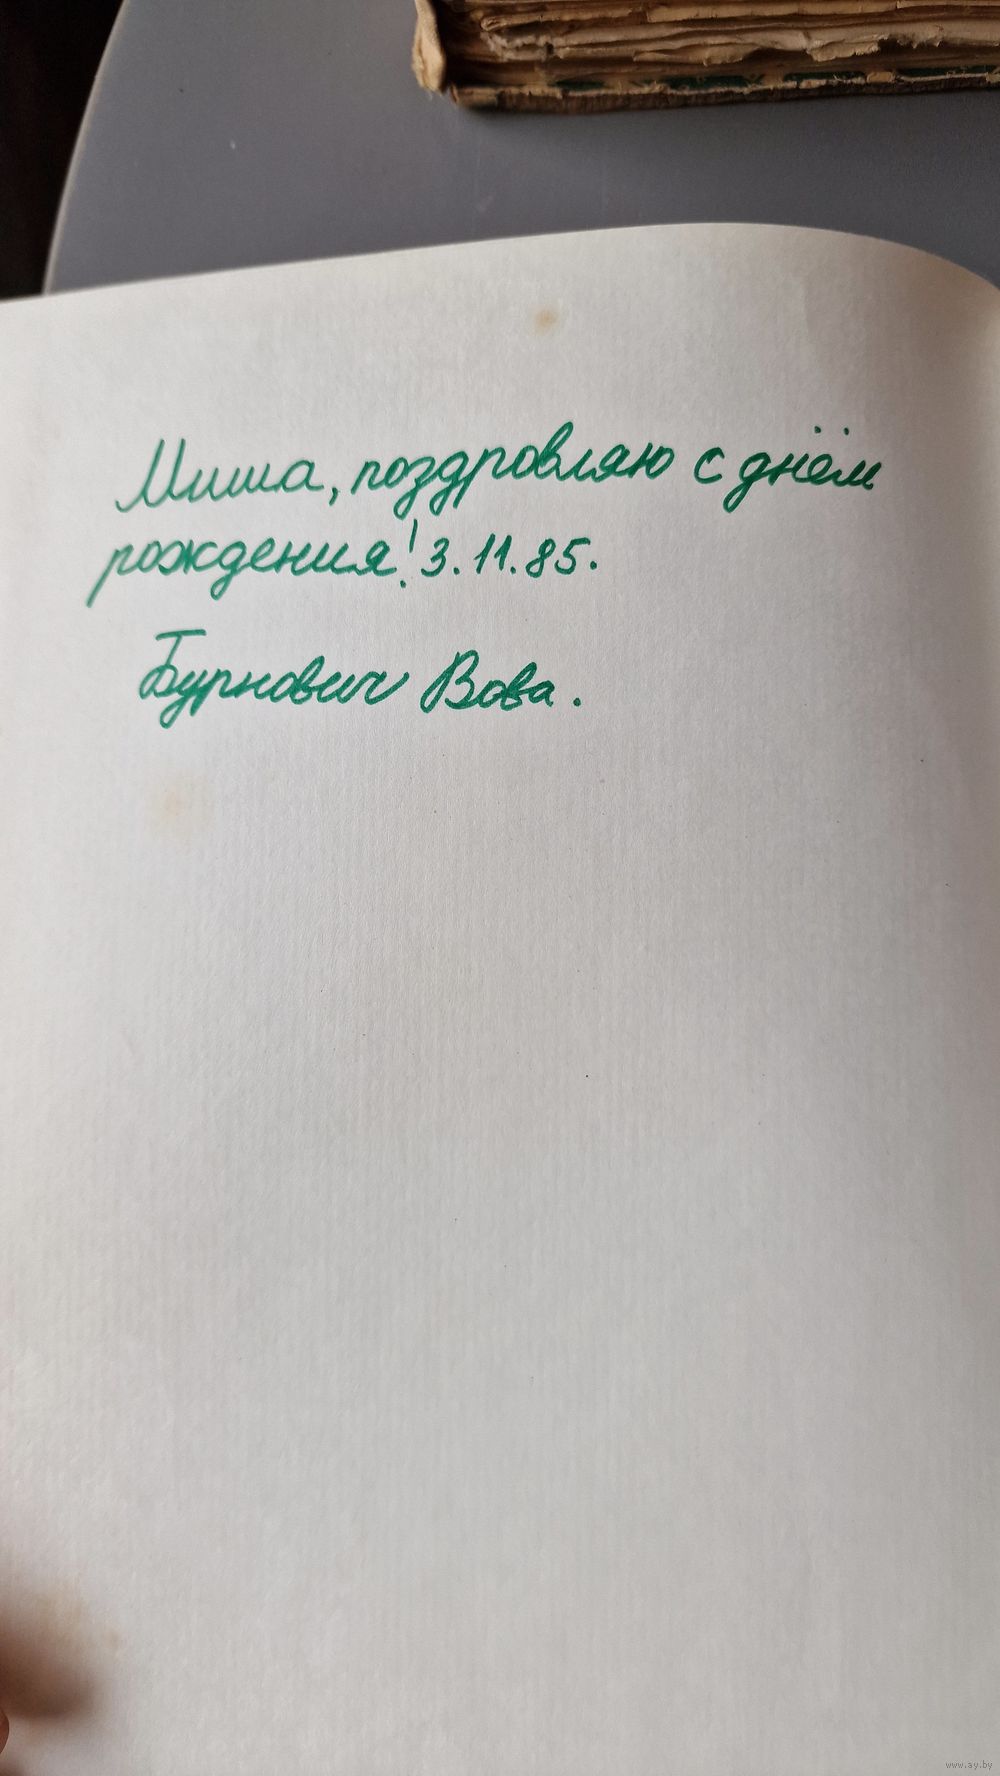 Миша, поздровляю с днём
рождения! 3.11.85.
Бурнович Вова.
www.ay.by